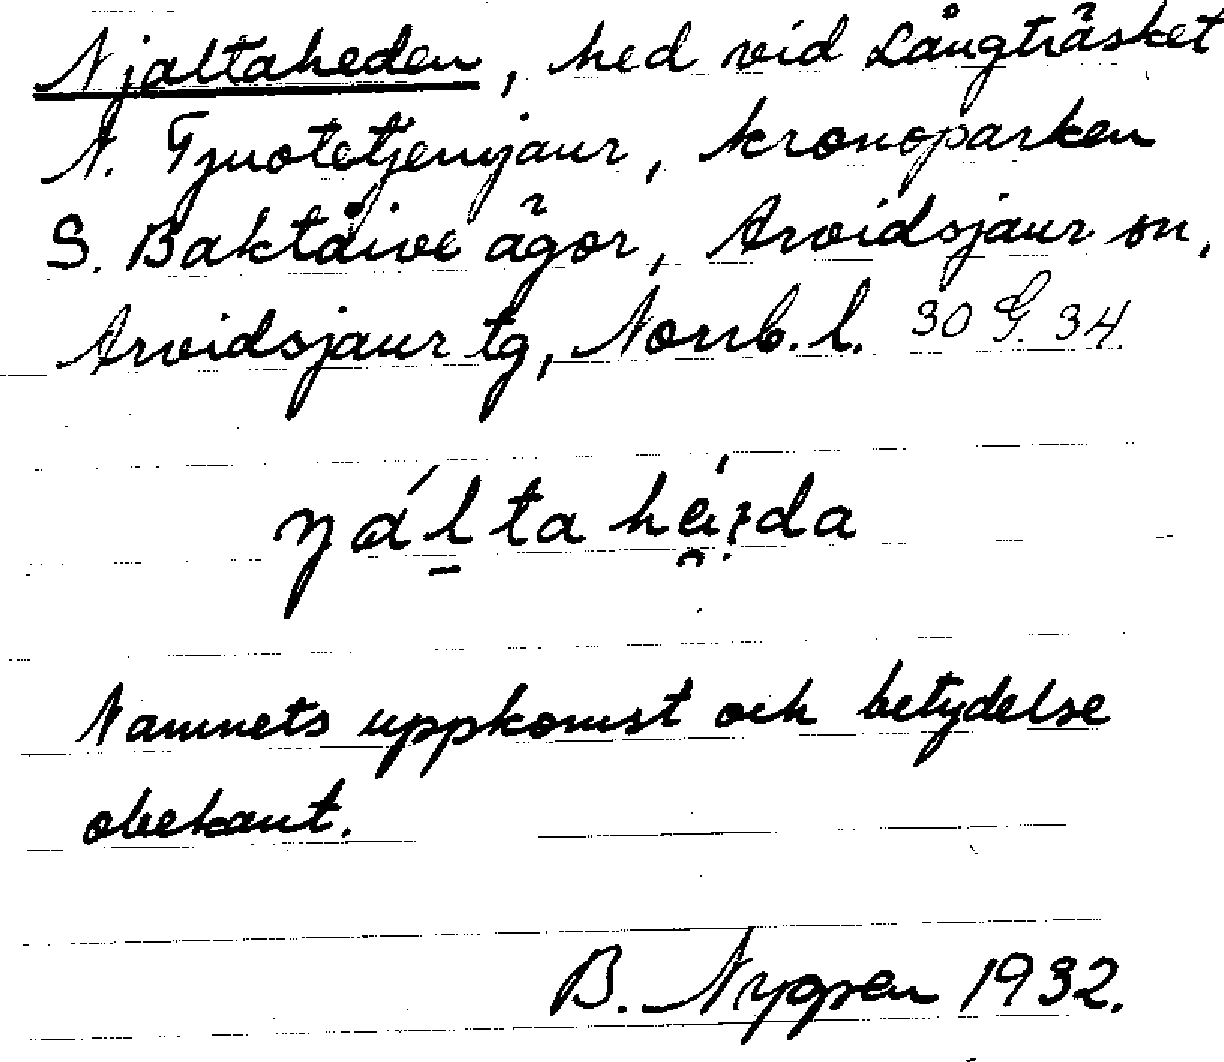 Njaltaheden, hed vid Långträsket
N. Tjuotetjenjaur, kronoparken
S. Baktåive ägor, Arvidsjaur sn,
Arvidsjaur tg, Norrb. l. 30 G. 34.
Namnets uppkomst och betydelse
obekant.
B. Nygren 1932.